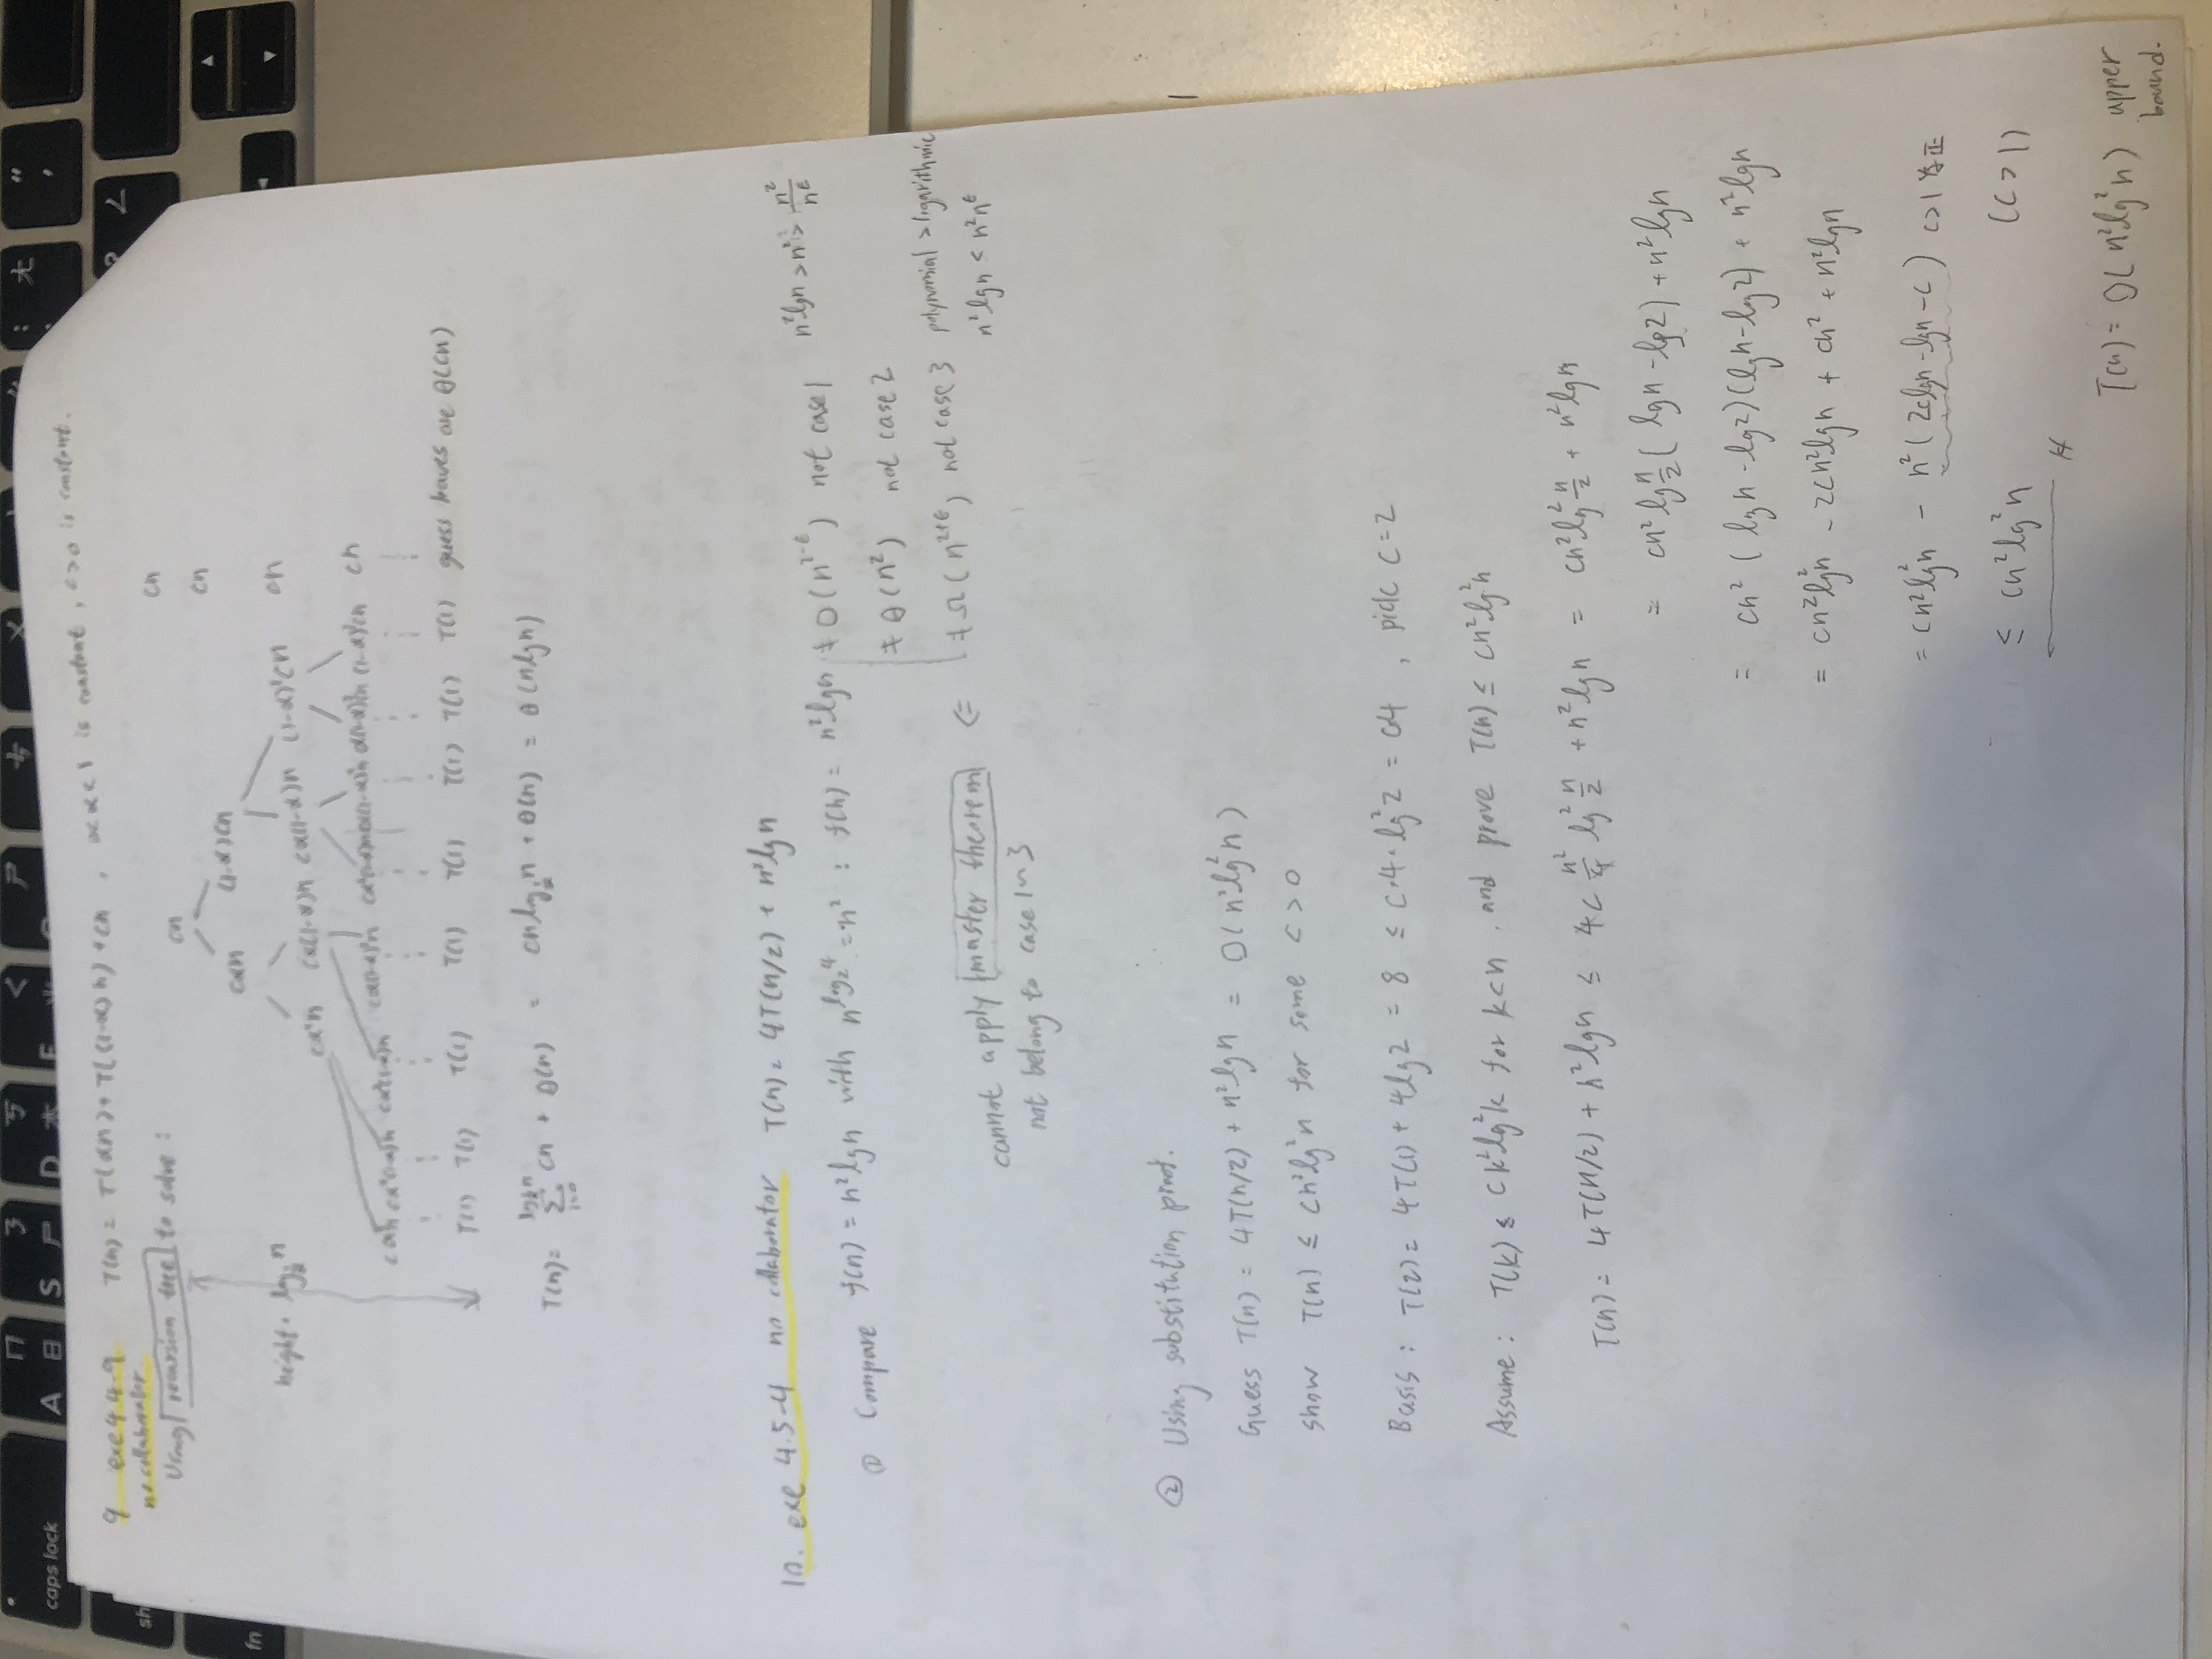 caps lock
A ㄇ 日
S ㄋ 尸
D ㄎ 木
fn
9 exe 4.4-9 T(n) = T(αn) + T((1-α)n) + cn , 0<α<1 is constant , c>0 is constant.
no collaborator
Using recursion tree to solve :
cn cn
cαn (1-α)cn cn
height = log_{1/α} n
cα²n cα(1-α)n cα(1-α)n (1-α)²cn cn
cα²(1-α)n cα²(1-α)n cα(1-α)²n cα²(1-α)n cα(1-α)²n α(1-α)²n (1-α)³cn cn
T(1) T(1) T(1) T(1) T(1) T(1) T(1) T(1) guess leaves are θ(cn)
T(n) = Σ_{i=0}^{log_{1/α} n} cn + θ(n) = cn log_{1/α} n + θ(n) = θ(n lg n)
10. exe 4.5-4 no collaborator T(n) = 4T(n/2) + n² lg n
① Compare f(n) = n² lg n with n^{log₂4} = n² : f(n) = n² lg n ≠ O(n^{2-ε}) not case 1 n² lg n > n² > n²/n^ε
≠ θ(n²) not case 2
≠ Ω(n^{2+ε}) not case 3 polynomial > logarithmic
n² lg n < n² n^ε
cannot apply master theorem ⇐
not belong to case 1~3
② Using substitution proof.
Guess T(n) = 4T(n/2) + n² lg n = O(n² lg² n)
show T(n) ≤ cn² lg² n for some c > 0
Basis : T(2) = 4T(1) + 4 lg 2 = 8 ≤ c·4·lg² 2 = c4 , pick c = 2
Assume : T(k) ≤ ck² lg² k for k<n , and prove T(n) ≤ cn² lg² n
T(n) = 4T(n/2) + n² lg n ≤ 4c n²/4 lg² n/2 + n² lg n = cn² lg² n/2 + n² lg n
= cn² lg n/2 ( lg n - lg 2) + n² lg n
= cn² ( lg n - lg 2)(lg n - lg 2) + n² lg n
= cn² lg² n - 2cn² lg n + cn² + n² lg n
= cn² lg² n - n² ( 2c lg n - lg n - c ) c>1 为正
≤ cn² lg² n (c > 1)
T(n) = O( n² lg² n ) upper
bound.